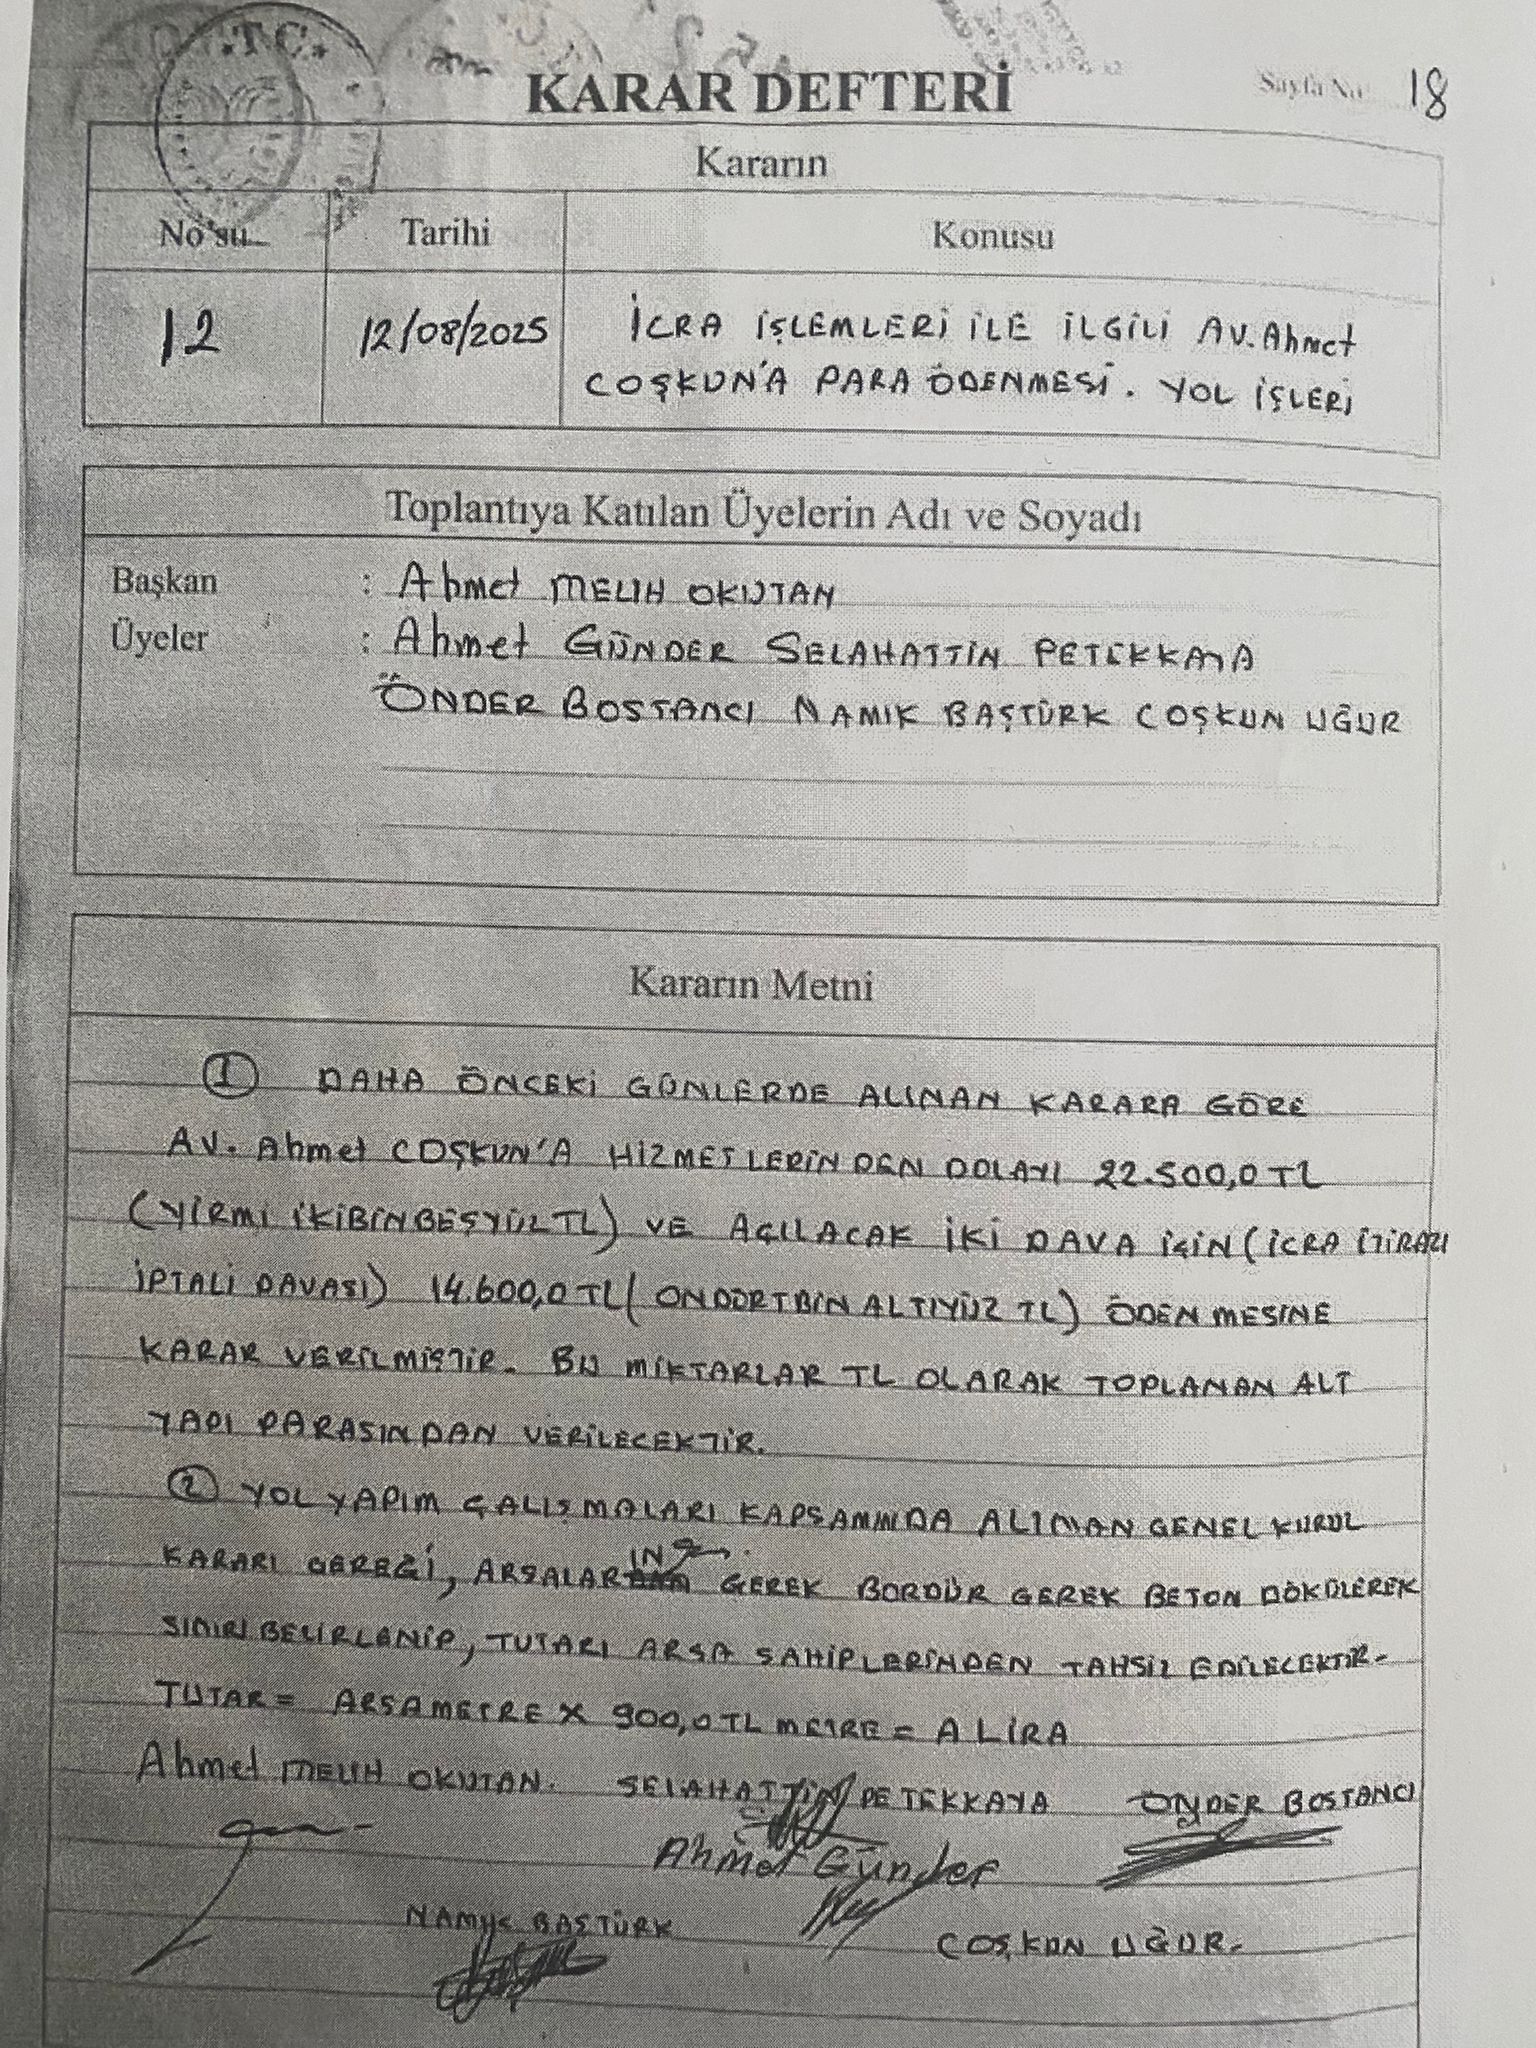 T.C.
KARAR DEFTERİ
Sayfa No 18
Kararın
No'su Tarihi Konusu
12 12/08/2025 İCRA İŞLEMLERİ İLE İLGİLİ AV. Ahmet
COŞKUN'A PARA ÖDENMESİ. YOL İŞLERİ
Toplantıya Katılan Üyelerin Adı ve Soyadı
Başkan : Ahmet MELİH OKUTAN
Üyeler : Ahmet GÜNDER SELAHATTİN PETEKKAYA
ÖNDER BOSTANCI NAMIK BAŞTÜRK COŞKUN UĞUR
Kararın Metni
① DAHA ÖNCEKİ GÜNLERDE ALINAN KARARA GÖRE
AV. Ahmet COŞKUN'A HİZMETLERİNDEN DOLAYI 22.500,0 TL
(YİRMİ İKİBİNBEŞYÜZ TL) VE AÇILACAK İKİ DAVA İÇİN (İCRA İTİRAZI
İPTALİ DAVASI) 14.600,0 TL (ONDÖRTBİN ALTIYÜZ TL) ÖDENMESİNE
KARAR VERİLMİŞTİR. BU MİKTARLAR TL OLARAK TOPLANAN ALT
YAPI PARASINDAN VERİLECEKTİR.
② YOL YAPIM ÇALIŞMALARI KAPSAMINDA ALINAN GENEL KURUL
KARARI GEREĞİ, ARSALARIN GEREK BORDÜR GEREK BETON DÖKÜLEREK
SINIRI BELİRLENİP, TUTARI ARSA SAHİPLERİNDEN TAHSİL EDİLECEKTİR.
TUTAR = ARSA METRE X 900,0 TL METRE = A LİRA
Ahmet MELİH OKUTAN. SELAHATTİN PETEKKAYA ÖNDER BOSTANCI
Ahmet Günder
NAMIK BAŞTÜRK COŞKUN UĞUR.